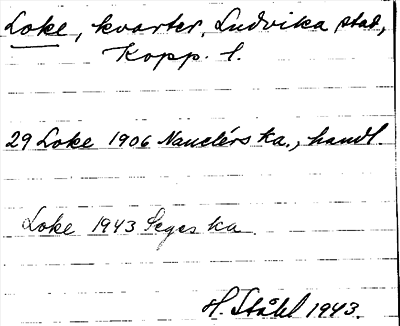 Loke, kvarter, Ludvika stad,
Kopp. l.
29 Loke 1906 Nauclérs ka., handl.
Loke 1943 Seges ka.
H. Ståhl 1943.